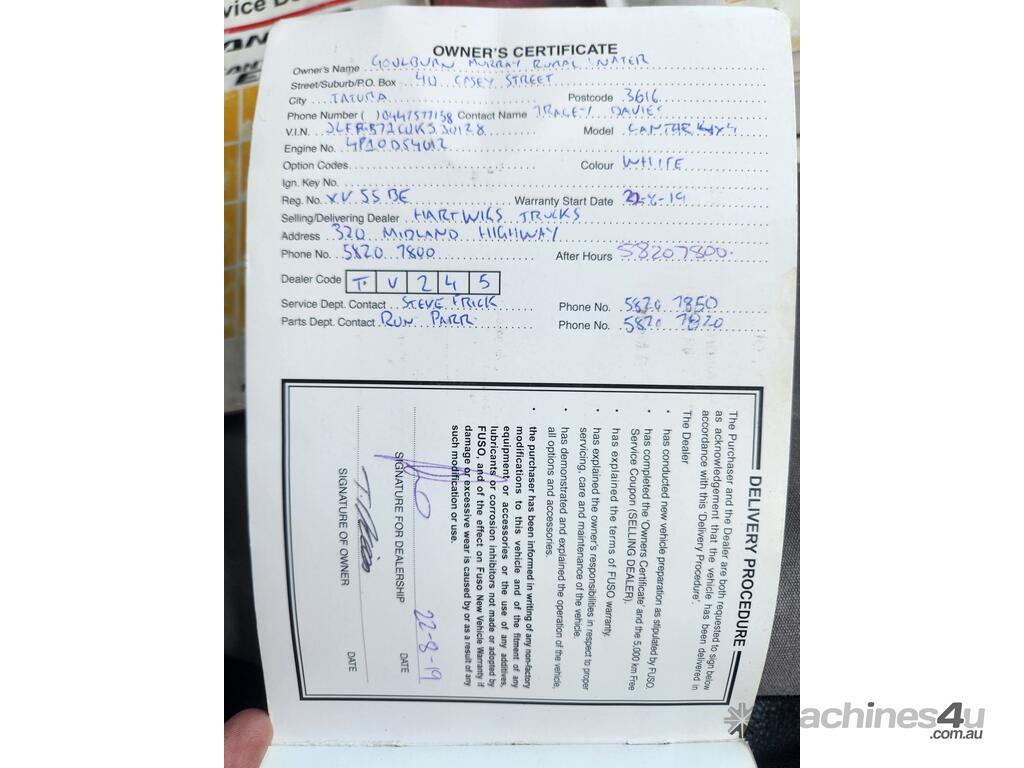 vice De
OWNER'S CERTIFICATE
Owner's Name GOULBURN MURRAY RURAL WATER
Street/Suburb/P.O. Box 40 CASEY STREET
City TATURA Postcode 3616
Phone Number ( ) Contact Name TRACEY DAVIES
V.I.N. Model CANTER 4x4
Engine No.
Option Codes Colour WHITE
Ign. Key No.
Reg. No. XV 55 BE Warranty Start Date 22-8-19
Selling/Delivering Dealer HARTWIGS TRUCKS
Address 320 MIDLAND HIGHWAY
Phone No. 5820 7800 After Hours 5820 7800.
Dealer Code T V 2 4 5
Service Dept. Contact STEVE FRICK Phone No. 5820 7850
Parts Dept. Contact RON PARR Phone No. 5820 7820
DELIVERY PROCEDURE
The Purchaser and the Dealer are both requested to sign below
as acknowledgement that the vehicle has been delivered in
accordance with this 'Delivery Procedure'.
The Dealer
• has conducted new vehicle preparation as stipulated by FUSO.
• has completed the 'Owners Certificate' and the 5,000 km Free
Service Coupon (SELLING DEALER).
• has explained the terms of FUSO warranty.
• has explained the owner's responsibilities in respect to proper
servicing, care and maintenance of the vehicle.
• has demonstrated and explained the operation of the vehicle,
all options and accessories.
• the purchaser has been informed in writing of any non-factory
modifications to this vehicle and of the fitment of any
equipment or accessories or the use of any additives,
lubricants or corrosion inhibitors not made or adopted by
FUSO, and of the effect on Fuso New Vehicle Warranty if
damage or excessive wear is caused by or as a result of any
such modification or use.
22-8-19
SIGNATURE FOR DEALERSHIP DATE
SIGNATURE OF OWNER DATE
machines4u
.com.au